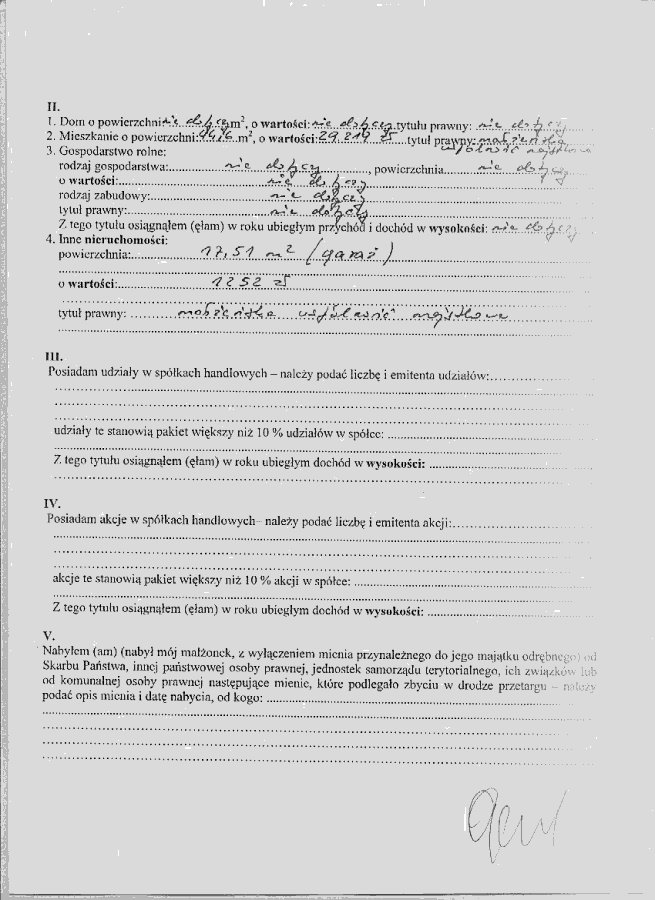 II.
1. Dom o powierzchni: nie dotyczy m², o wartości: nie dotyczy tytuł prawny: nie dotyczy
2. Mieszkanie o powierzchni: m², o wartości: 29.219 zł tytuł prawny: małżeńska
wspólność majątkowa
3. Gospodarstwo rolne:
rodzaj gospodarstwa: nie dotyczy, powierzchnia nie dotyczy
o wartości: nie dotyczy
rodzaj zabudowy: nie dotyczy
tytuł prawny: nie dotyczy
Z tego tytułu osiągnąłem (ęłam) w roku ubiegłym przychód i dochód w wysokości: nie dotyczy
4. Inne nieruchomości:
powierzchnia: 17,51 m² (garaż)
o wartości: 1252 zł
tytuł prawny: małżeńska wspólność majątkowa
III.
Posiadam udziały w spółkach handlowych – należy podać liczbę i emitenta udziałów:
udziały te stanowią pakiet większy niż 10 % udziałów w spółce:
Z tego tytułu osiągnąłem (ęłam) w roku ubiegłym dochód w wysokości:
IV.
Posiadam akcje w spółkach handlowych– należy podać liczbę i emitenta akcji:
akcje te stanowią pakiet większy niż 10 % akcji w spółce:
Z tego tytułu osiągnąłem (ęłam) w roku ubiegłym dochód w wysokości:
V.
Nabyłem (am) (nabył mój małżonek, z wyłączeniem mienia przynależnego do jego majątku odrębnego) od
Skarbu Państwa, innej państwowej osoby prawnej, jednostek samorządu terytorialnego, ich związków lub
od komunalnej osoby prawnej następujące mienie, które podlegało zbyciu w drodze przetargu – należy
podać opis mienia i datę nabycia, od kogo: